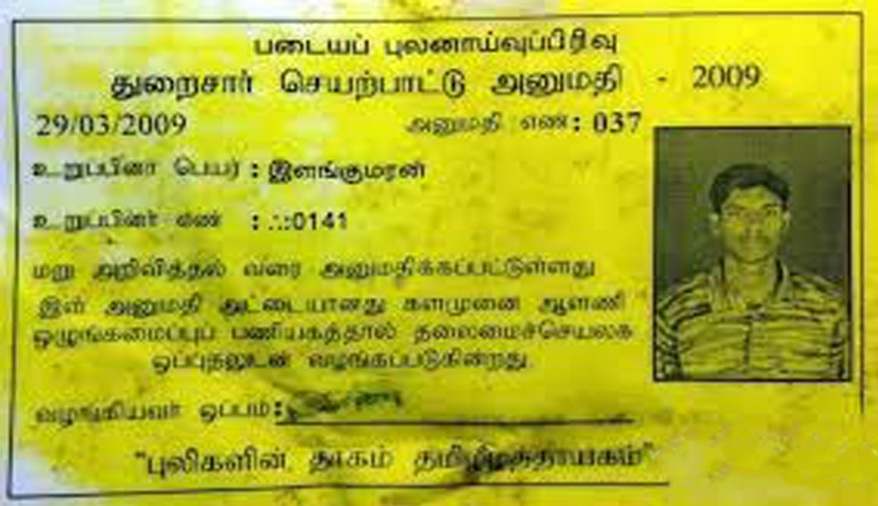 படையப் புலனாய்வுப்பிரிவு
துறைசார் செயற்பாட்டு அனுமதி - 2009
29/03/2009 அனுமதி எண்: 037
உறுப்பினர் பெயர் : இளங்குமரன்
உறுப்பினர் எண் : ஃ0141
மறு அறிவித்தல் வரை அனுமதிக்கப்பட்டுள்ளது
இவ் அனுமதி அட்டையானது களமுனை ஆளணி
ஒழுங்கமைப்புப் பணியகத்தால் தலைமைச்செயலக
ஒப்புதலுடன் வழங்கப்படுகின்றது.
வழங்கியவர் ஒப்பம்:
"புலிகளின் தாகம் தமிழீழத்தாயகம்"